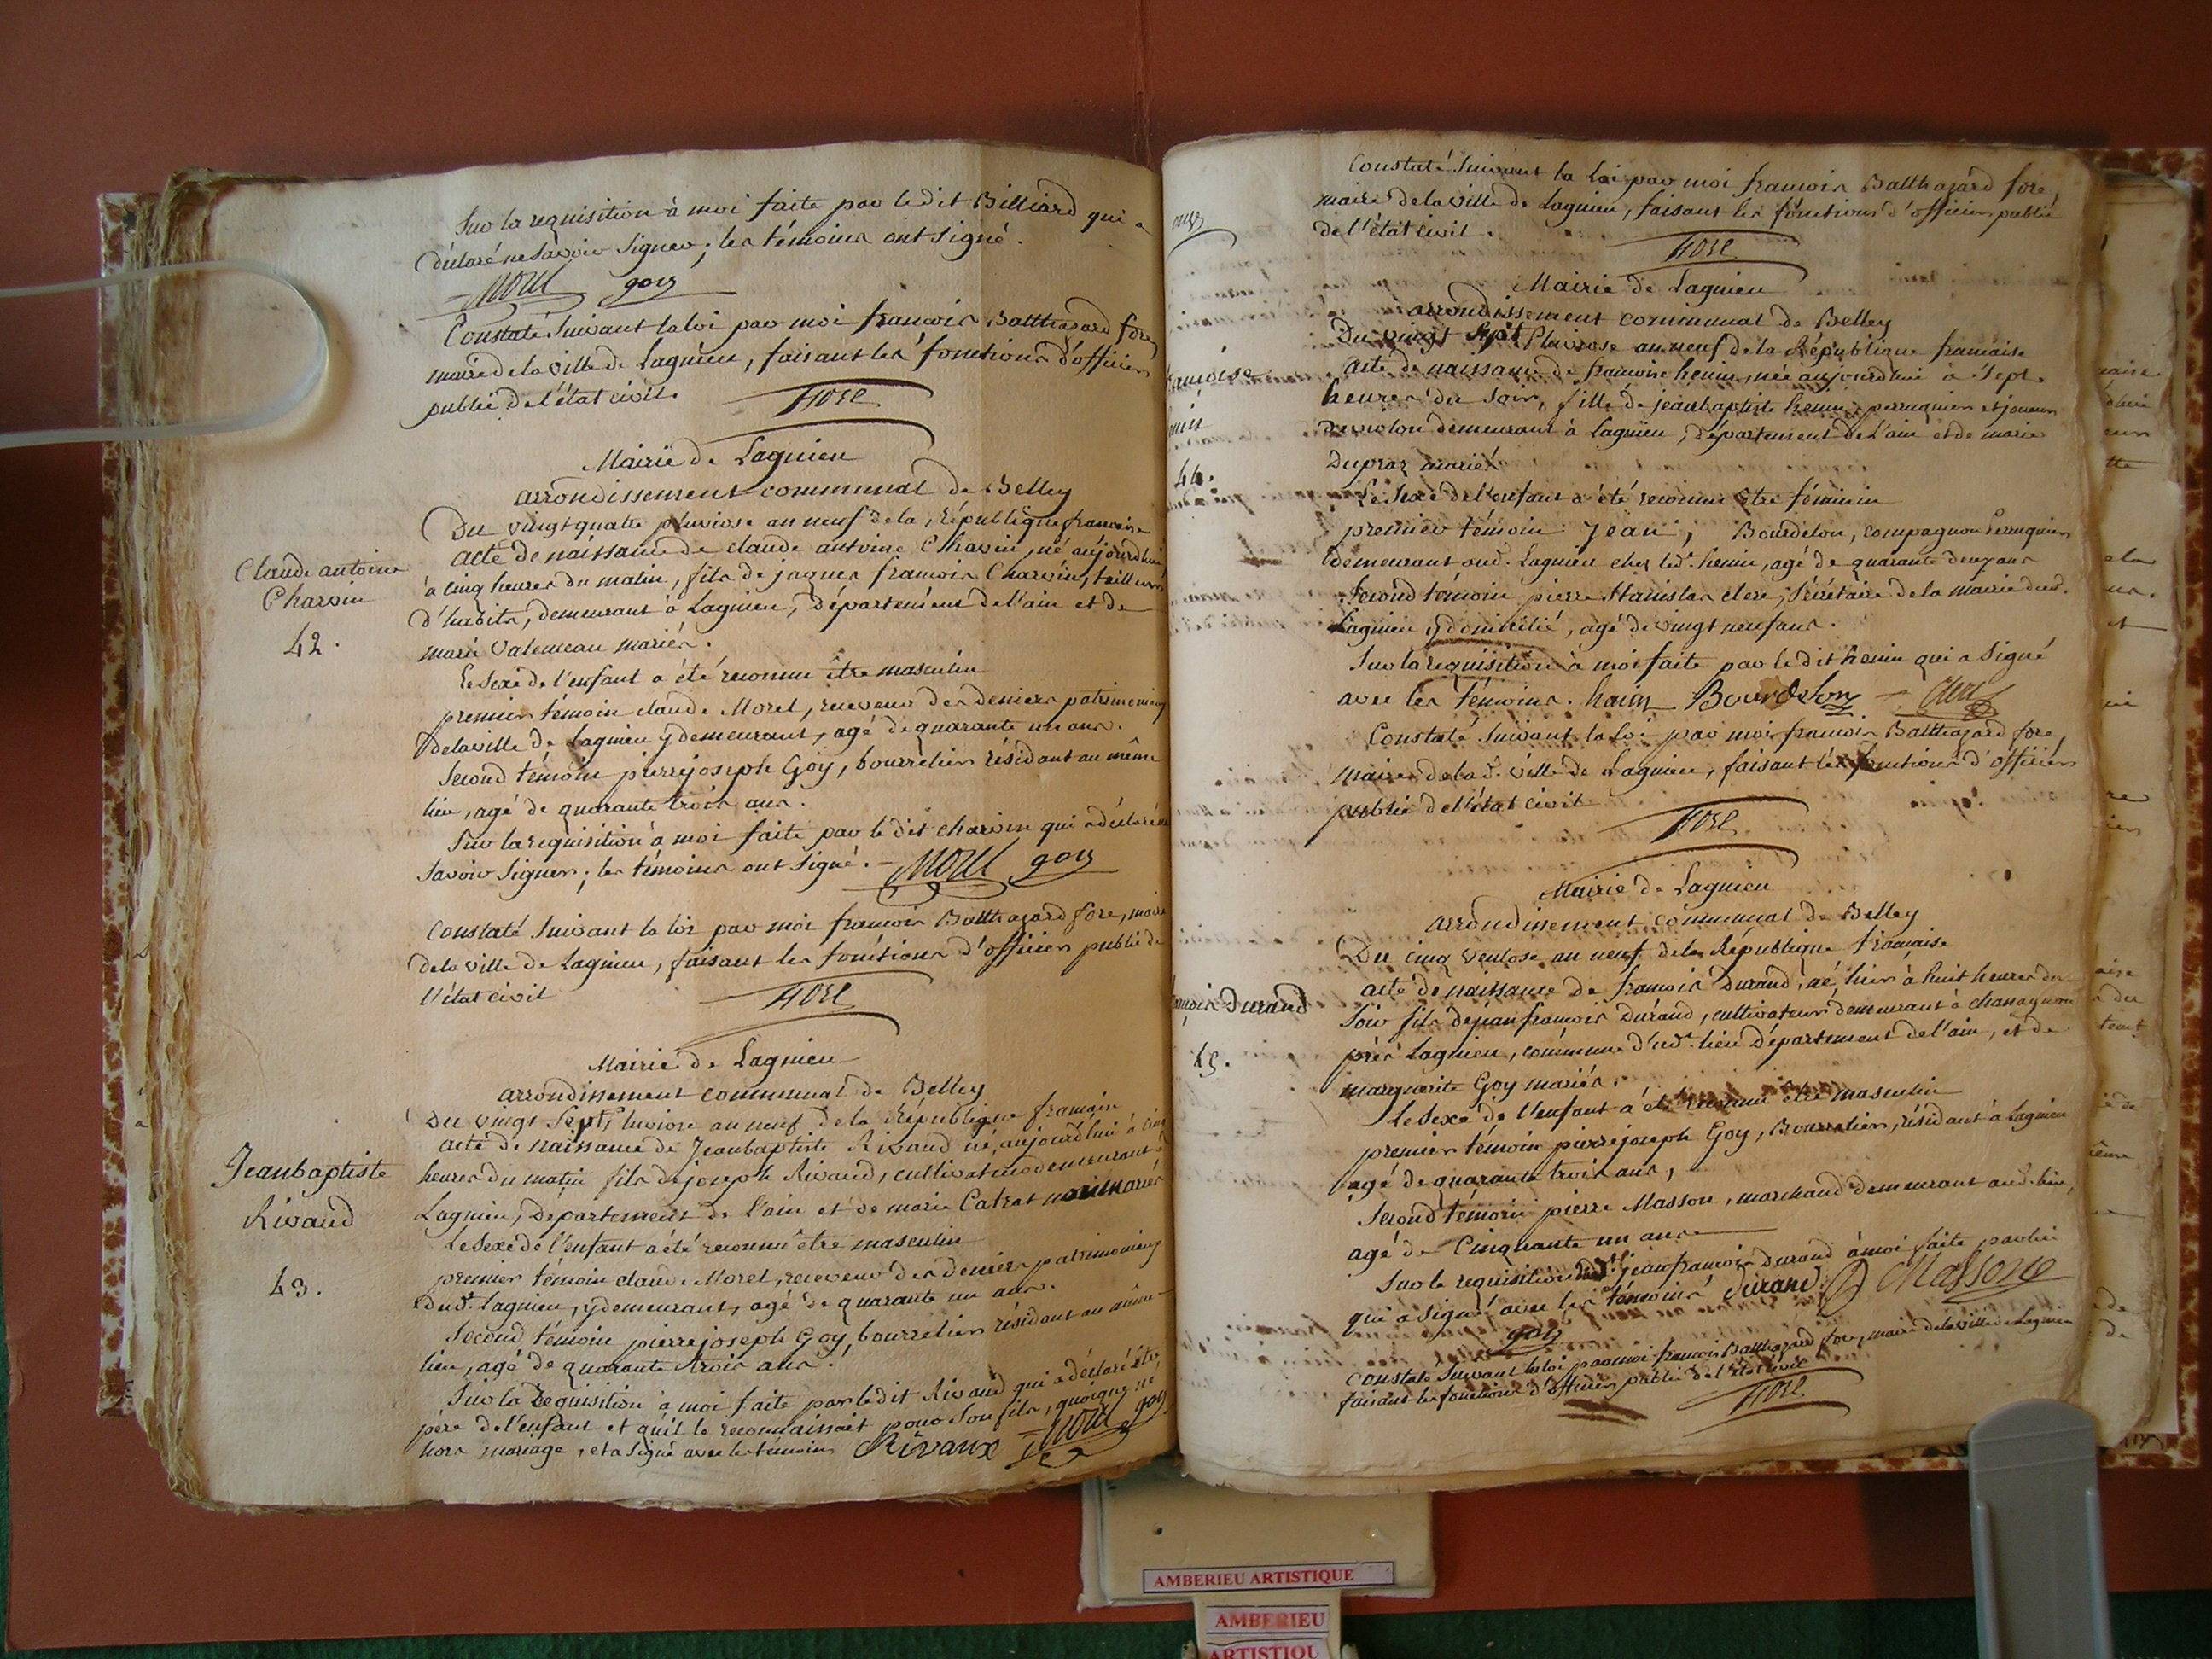 Sur la requisition à moi faite par le dit Billiard qui a
déclaré ne savoir signer ; les témoins ont signé.
Morel goy
Constaté suivant la loi par moi françois Balthazard fore,
maire de la ville de Lagnieu, faisant les fonctions d'officier
public de l'état civil. fore
Mairie de Lagnieu
arrondissement communal de Belley
Du vingt quatre pluviose an neuf de la République francoise
acte de naissance de claude antoine Charvin, né aujourdhui
à cinq heures du matin, fils de jaques francois Charvin, tailleur
d'habits, demeurant à Lagnieu, Département de l'ain et de
marie mariés.
Le sexe de l'enfant a été reconnu être masculin
premier témoin claude Morel, receveur des deniers patrimoniaux
de la ville de Lagnieu y demeurant, agé de quarante un ans.
Second témoin pierre joseph Goy, bourrelier résidant au même
lieu, agé de quarante trois ans.
Sur la requisition à moi faite par le dit charvin qui a déclaré ne
savoir signer ; les témoins ont signé. Morel goy
Constaté suivant la loi par moi francois Balthazard fore, maire
de la ville de Lagnieu, faisant les fonctions d'officier public de
l'état civil fore
Mairie de Lagnieu
arrondissement communal de Belley
Du vingt Sept pluviose an neuf de la République francaise
acte de naissance de Jeanbaptiste Rivaud né, aujourdhui à cinq
heures du matin fils de joseph Rivaud, cultivateur demeurant à
Lagnieu, Département de l'ain et de marie Catrat non mariés
Le sexe de l'enfant a été reconnu être masculin
premier témoin claude Morel, receveur des deniers patrimoniaux
dud. Lagnieu, y demeurant, agé de quarante un ans.
Second témoin pierre joseph Goy, bourrelier résidant au même
lieu, agé de quarante trois ans.
Sur la Requisition à moi faite par le dit Rivaud qui a déclaré être
père de l'enfant et qu'il le reconnaissait pour son fils, quoique né
hors mariage, et a signé avec les témoins Rivaux Morel goy
Claude antoine
Charvin
42.
Jeanbaptiste
Rivaud
43.
Constaté suivant la loi par moi francois Balthazard fore,
maire de la ville de Lagnieu, faisant les fonctions d'officier public
de l'état civil. fore
Mairie de Lagnieu
arrondissement communal de Belley
Du vingt sept Pluviose an neuf de la République francaise
acte de naissance de francoise henin, née aujourdhui à sept
heures du soir, fille de jeanbaptiste henin, perruquier et joueur
de violon demeurant à Lagnieu, Département de l'ain et de marie
Dupraz mariés
Le sexe de l'enfant a été reconnu être féminin
premier témoin Jean, Bourdelon, compagnon Perruquier
demeurant aud. Lagnieu chez led. henin, agé de quarante deux ans
Second témoin pierre Stanislas clerc, Sécrétaire de la mairie dud.
Lagnieu y domicilié, agé de vingt neuf ans.
Sur la requisition à moi faite par le dit henin qui a signé
avec les témoins. Bourdelon clerc
Constaté suivant la loi par moi francois Balthazard fore,
maire de lad. ville de Lagnieu, faisant les fonctions d'officier
public de l'état civil fore
Mairie de Lagnieu
arrondissement communal de Belley
Du cinq ventose an neuf de la République francaise
acte de naissance de francois Durand, né hier à huit heures du
soir fils de jean francois Durand, cultivateur demeurant à chanagnieu
près Lagnieu, commune dud. lieu Département de l'ain, et de
marguerite Goy mariés.
Le sexe de l'enfant a été reconnu être masculin
premier témoin pierre joseph Goy, Bourrelier, résidant à Lagnieu
agé de quarante trois ans,
Second témoin pierre Masson, marchand demeurant aud. lieu,
agé de Cinquante un ans
Sur la requisition dud. jean francois Durand à moi faite par lui
qui a signé avec les témoins Durand Masson
goy
Constaté suivant la loi par moi francois Balthazard fore, maire de la ville de Lagnieu
faisant les fonctions d'officier public de l'état civil
fore
44.
Durand
45.
AMBERIEU ARTISTIQUE
AMBERIEU